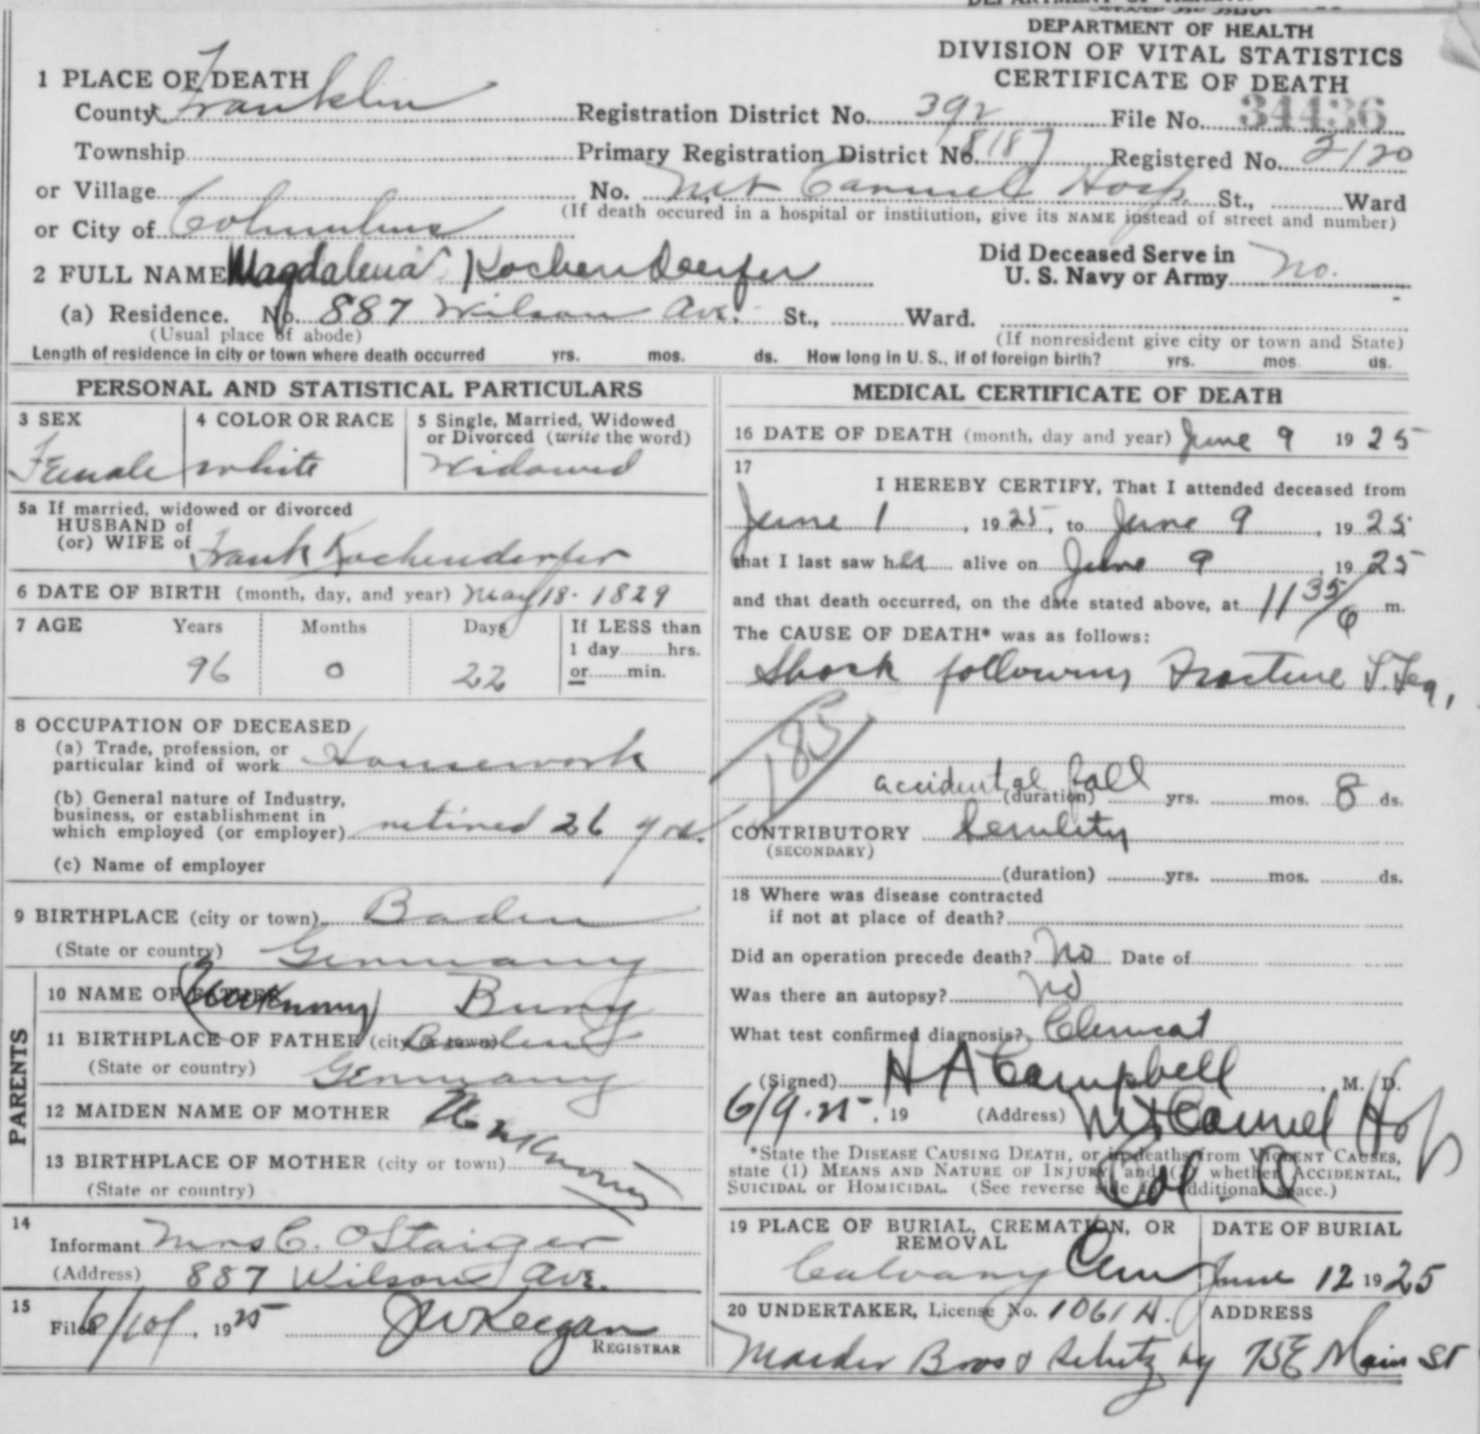 DEPARTMENT OF HEALTH
DIVISION OF VITAL STATISTICS
CERTIFICATE OF DEATH
1 PLACE OF DEATH
County Franklin Registration District No. 392 File No. 34436
Township Primary Registration District No. 8187 Registered No. 2120
or Village No. Mt Carmel Hosp. St., Ward
or City of Columbus (If death occured in a hospital or institution, give its NAME instead of street and number)
2 FULL NAME Magdalena Kochendoerfer Did Deceased Serve in U. S. Navy or Army No.
(a) Residence. No. 887 Wilson Ave. St., Ward.
(Usual place of abode) (If nonresident give city or town and State)
Length of residence in city or town where death occurred yrs. mos. ds. How long in U. S., if of foreign birth? yrs. mos. ds.
PERSONAL AND STATISTICAL PARTICULARS
3 SEX 4 COLOR OR RACE 5 Single, Married, Widowed
or Divorced (write the word)
Female white Widowed
5a If married, widowed or divorced
HUSBAND of
(or) WIFE of Frank Kochendorfer
6 DATE OF BIRTH (month, day, and year) May 18 - 1829
7 AGE Years Months Days If LESS than
1 day hrs.
96 0 22 or min.
8 OCCUPATION OF DECEASED
(a) Trade, profession, or
particular kind of work Housework
(b) General nature of Industry,
business, or establishment in
which employed (or employer) retired 26 yrs.
(c) Name of employer
9 BIRTHPLACE (city or town) Baden
(State or country) Germany
PARENTS
10 NAME OF FATHER (Unknown) Bury
11 BIRTHPLACE OF FATHER (city or town) Baden
(State or country) Germany
12 MAIDEN NAME OF MOTHER Unknown
13 BIRTHPLACE OF MOTHER (city or town)
(State or country)
14
Informant Mrs C. O Staiger
(Address) 887 Wilson Ave.
15
Filed 6/10/, 1925 JW Keegan
REGISTRAR
MEDICAL CERTIFICATE OF DEATH
16 DATE OF DEATH (month, day and year) June 9 1925
17
I HEREBY CERTIFY, That I attended deceased from
June 1, 1925, to June 9, 1925
that I last saw her alive on June 9 1925
and that death occurred, on the date stated above, at 11 35/ m.
The CAUSE OF DEATH* was as follows:
Shock following Fracture L. Leg,
185
accidental fall
(duration) yrs. mos. 8 ds.
CONTRIBUTORY Senility
(SECONDARY)
(duration) yrs. mos. ds.
18 Where was disease contracted
if not at place of death?
Did an operation precede death? No Date of
Was there an autopsy? No
What test confirmed diagnosis? Clinical
(Signed) H A Campbell, M. D.
6/9.25, 19 (Address) Mt Carmel Hosp
Col. O
*State the DISEASE CAUSING DEATH, or in deaths from VIOLENT CAUSES,
state (1) MEANS AND NATURE OF INJURY, and (2) whether ACCIDENTAL,
SUICIDAL or HOMICIDAL. (See reverse side for additional space.)
19 PLACE OF BURIAL, CREMATION, OR
REMOVAL DATE OF BURIAL
Calvary Cem June 12 1925
20 UNDERTAKER, License No. 1061 A. ADDRESS
Maeder Bros & Schatz by 75 E Main St